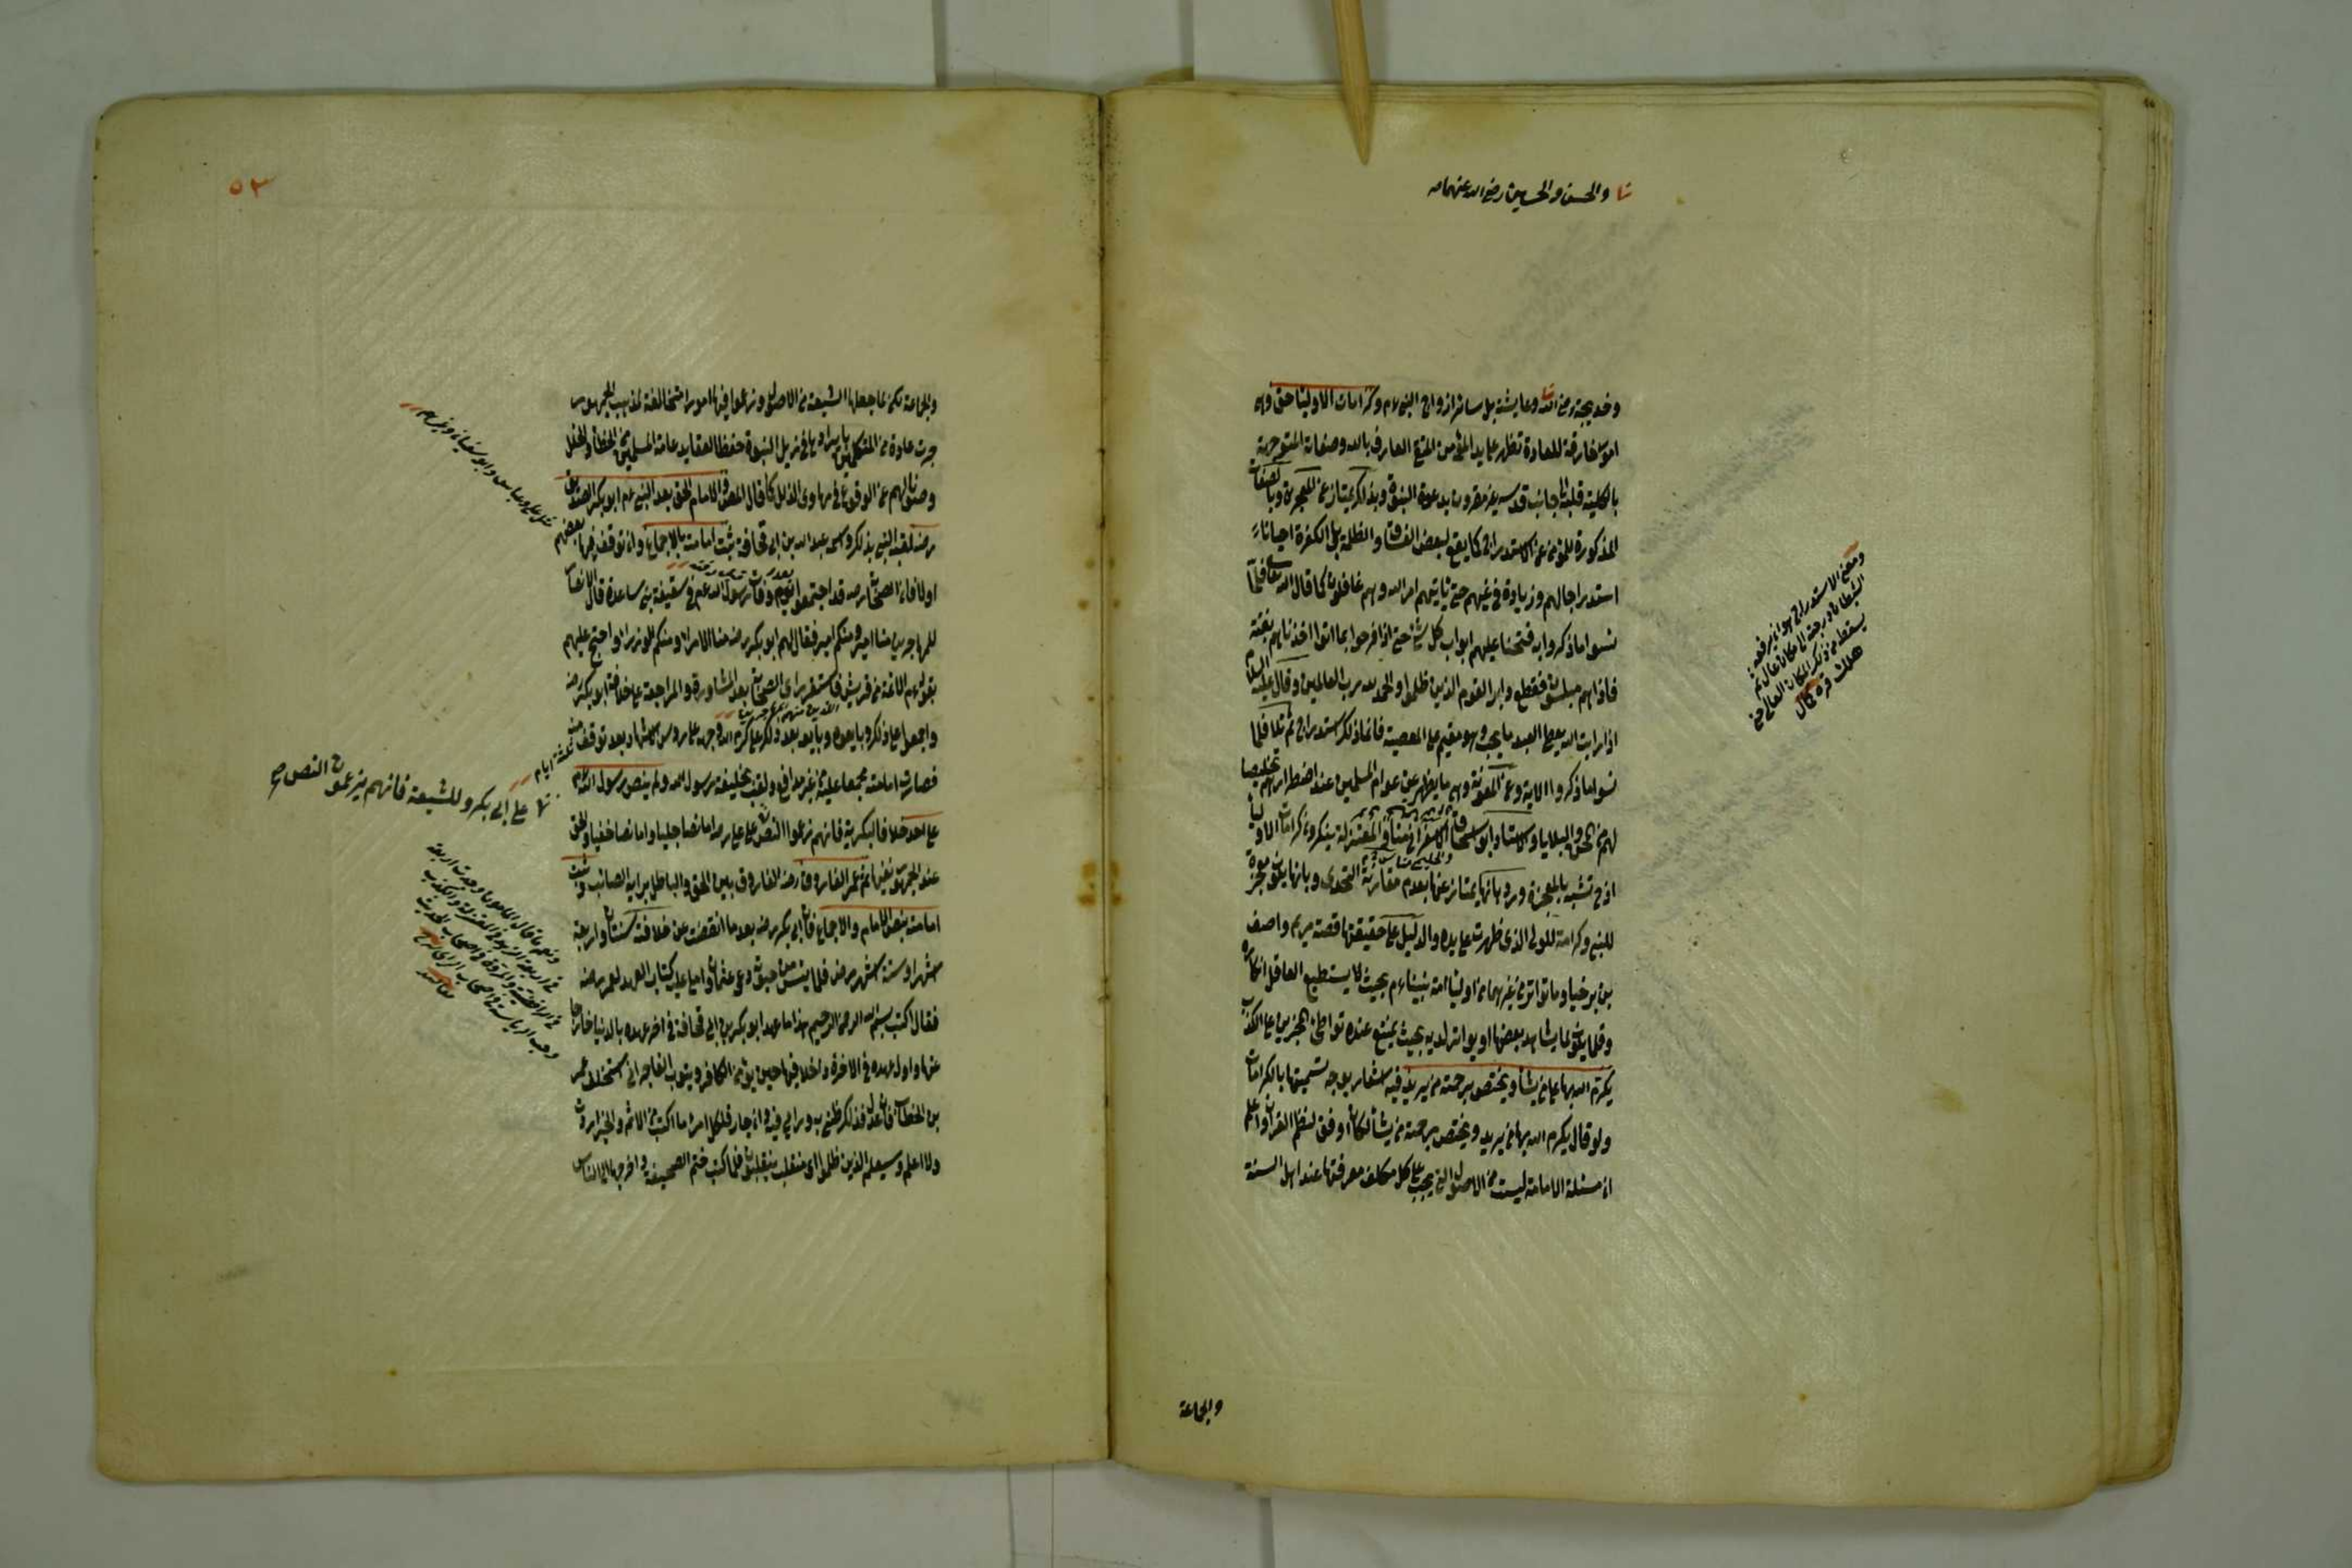 والحسن والحسين رضي الله عنهما
وخديجة رضي الله وعايشة بل سائر ازواج النبي عم وكرامات الاوليا حق وهي
امور خارقة للعادة تظهر على يد المؤمن المتقي العارف بالله وصفاته المتوجهة
بالكلية قلبه الى جانب قدسه غير مقرونة بدعوة النبوة وبذلك يمتاز عن المعجزة وبالصفات
المذكورة للمؤمن عن الاستدراج كما يقع لبعض الفساق والظلمة بل الكفرة احيانا
استدراجا لهم وزيادة في غيهم حتى ياتيهم امر الله وهم غافلون كما قال الله تعالى فلما
نسوا ما ذكروا به فتحنا عليهم ابواب كل شئ حتى اذا فرحوا بما اتوا اخذناهم بغتة
فاذا هم مبلسون فقطع دابر القوم الذين ظلموا والحمد لله رب العالمين وقال عليه السلام
اذا رايت الله يعطي العبد ما يحب وهو مقيم على المعصية فانما ذلك استدراج ثم تلا فلما
نسوا ما ذكروا الاية وعن المعونة وهي ما يظهر عن عوام المسلمين عند اضطرارهم تخليصا
لهم من المحن والبلايا والاستاد ابو اسحاق الاسفرائني منا والمعتزلة ينكرون كرامات الاوليا
اذ تشبه بالمعجزة ورد بانها يمتاز عنها بعدم مقارنة التحدي وبانها يكون معجزة
للنبي وكرامة للولي الذي ظهرت على يده والدليل على حقيقتها قصة مريم واصف
بن برخيا وما تواتر من غيرهما من اوليا امة نبينا عم بحيث لا يستطيع العاقل انكاره
وقلما يكون لا يشاهد بعضها او يتواتر لديه بحيث يمتنع عنده تواطئ المخبرين على الكذب
يكرم الله بها على من يشأ ويختص برحمته من يريد فيه اشعار بوجه تسميتها بالكرامات
ولو قال يكرم الله بها من يريد ويختص برحمته من يشأ لكان اوفق لنظم القران واعلم
ان مسئلة الامامة ليست من الاصول التي يجب على كل مكلف معرفتها عند اهل السنة
ومعنى الاستدراج هو ان يرفعه
الشيطان درجة الى مكان عال ثم
يسقط من ذلك المكان العالي حتى
هلك قره كمال
والجماعة
٥٢
والجماعة لكن لما جعلها الشيعة من الاصول وزعموا فيها امورا مخالفة لمذهب الجمهور
جرت عادة من المتكلمين بايرادها في ذيل النبوة حفظا لعقايد عامة المسلمين عن الخطأ والخلل
وصونا لهم عن الوقوع في مهاوي الذلل كما قال المصنف والامام الحق بعد النبي عم ابو بكر الصديق
رضه لقبه النبي بذلك واسمه عبد الله بن ابي قحافة ثبت امامته بالاجماع وان توقف فيها بعضهم
اولا فان الصحابة رضه قد اجتمعوا يوم وفات رسول الله عم في سقيفة بني ساعدة قال الانصار
للمهاجرين منا امير ومنكم امير فقال لهم ابو بكر رضه منا الامراء ومنكم الوزراء واحتج عليهم
بقوله عم الائمة من قريش فاستقر راى الصحابة بعد المشاورة والمراجعة على خلافة ابو بكر رضه
واجمعوا على ذلك وبايعوه وبايعه بعد ذلك علي كرم الله وجهه على رؤس الاشهاد بعد توقف منه
فصارت امامته مجمعا عليه من غير مدافع ولقب بخليفة رسول الله ولم ينص رسول الله عم
على احد خلافا للبكرية فانهم زعموا النص على علي رضه اما نصا جليا واما نصا خفيا والحق
عند الجمهور نفيهما ثم عمر الفاروق رضه الفاروق بين الحق والباطل برايه الصائب وثبت
امامته بنص الامام والاجماع فان ابي بكر رضه بعد ما انقضت من خلافته سنتان واربعة
اشهر او ستة اشهر مرض فلما يئس من حيوته دعى عثمان واملى عليه كتاب العهد لعمر رضه
فقال اكتب بسم الله الرحمن الرحيم هذا ما عهد ابو بكر بن ابي قحافة في اخر عهده بالدنيا خارجا
عنها واول عهده في الاخرة داخلا فيها حين يؤمن الكافر ويتوب الفاجر اني استخلف عمر
بن الخطاب فان عدل فذلك ظني به ورايي فيه وان جار فلكل امرا ما اكتسب من الاثم والخير اردت
ولا اعلم وسيعلم الذين ظلموا اى منقلب ينقلبون فلما كتب ختم الصحيفة واخرجها الى الناس
مثل علي وعباس وابو سفيان وغيرهم
ستة ايام
على ابي بكر وللشيعة فانهم يزعمون النص صح
ونعم ما قال المامون وجدت اربعة
في اربعة الزهد في المعتزلة والكذب
في الرافضة والمروة في اصحاب الحديث
وحب الرياسة في اصحاب الراى